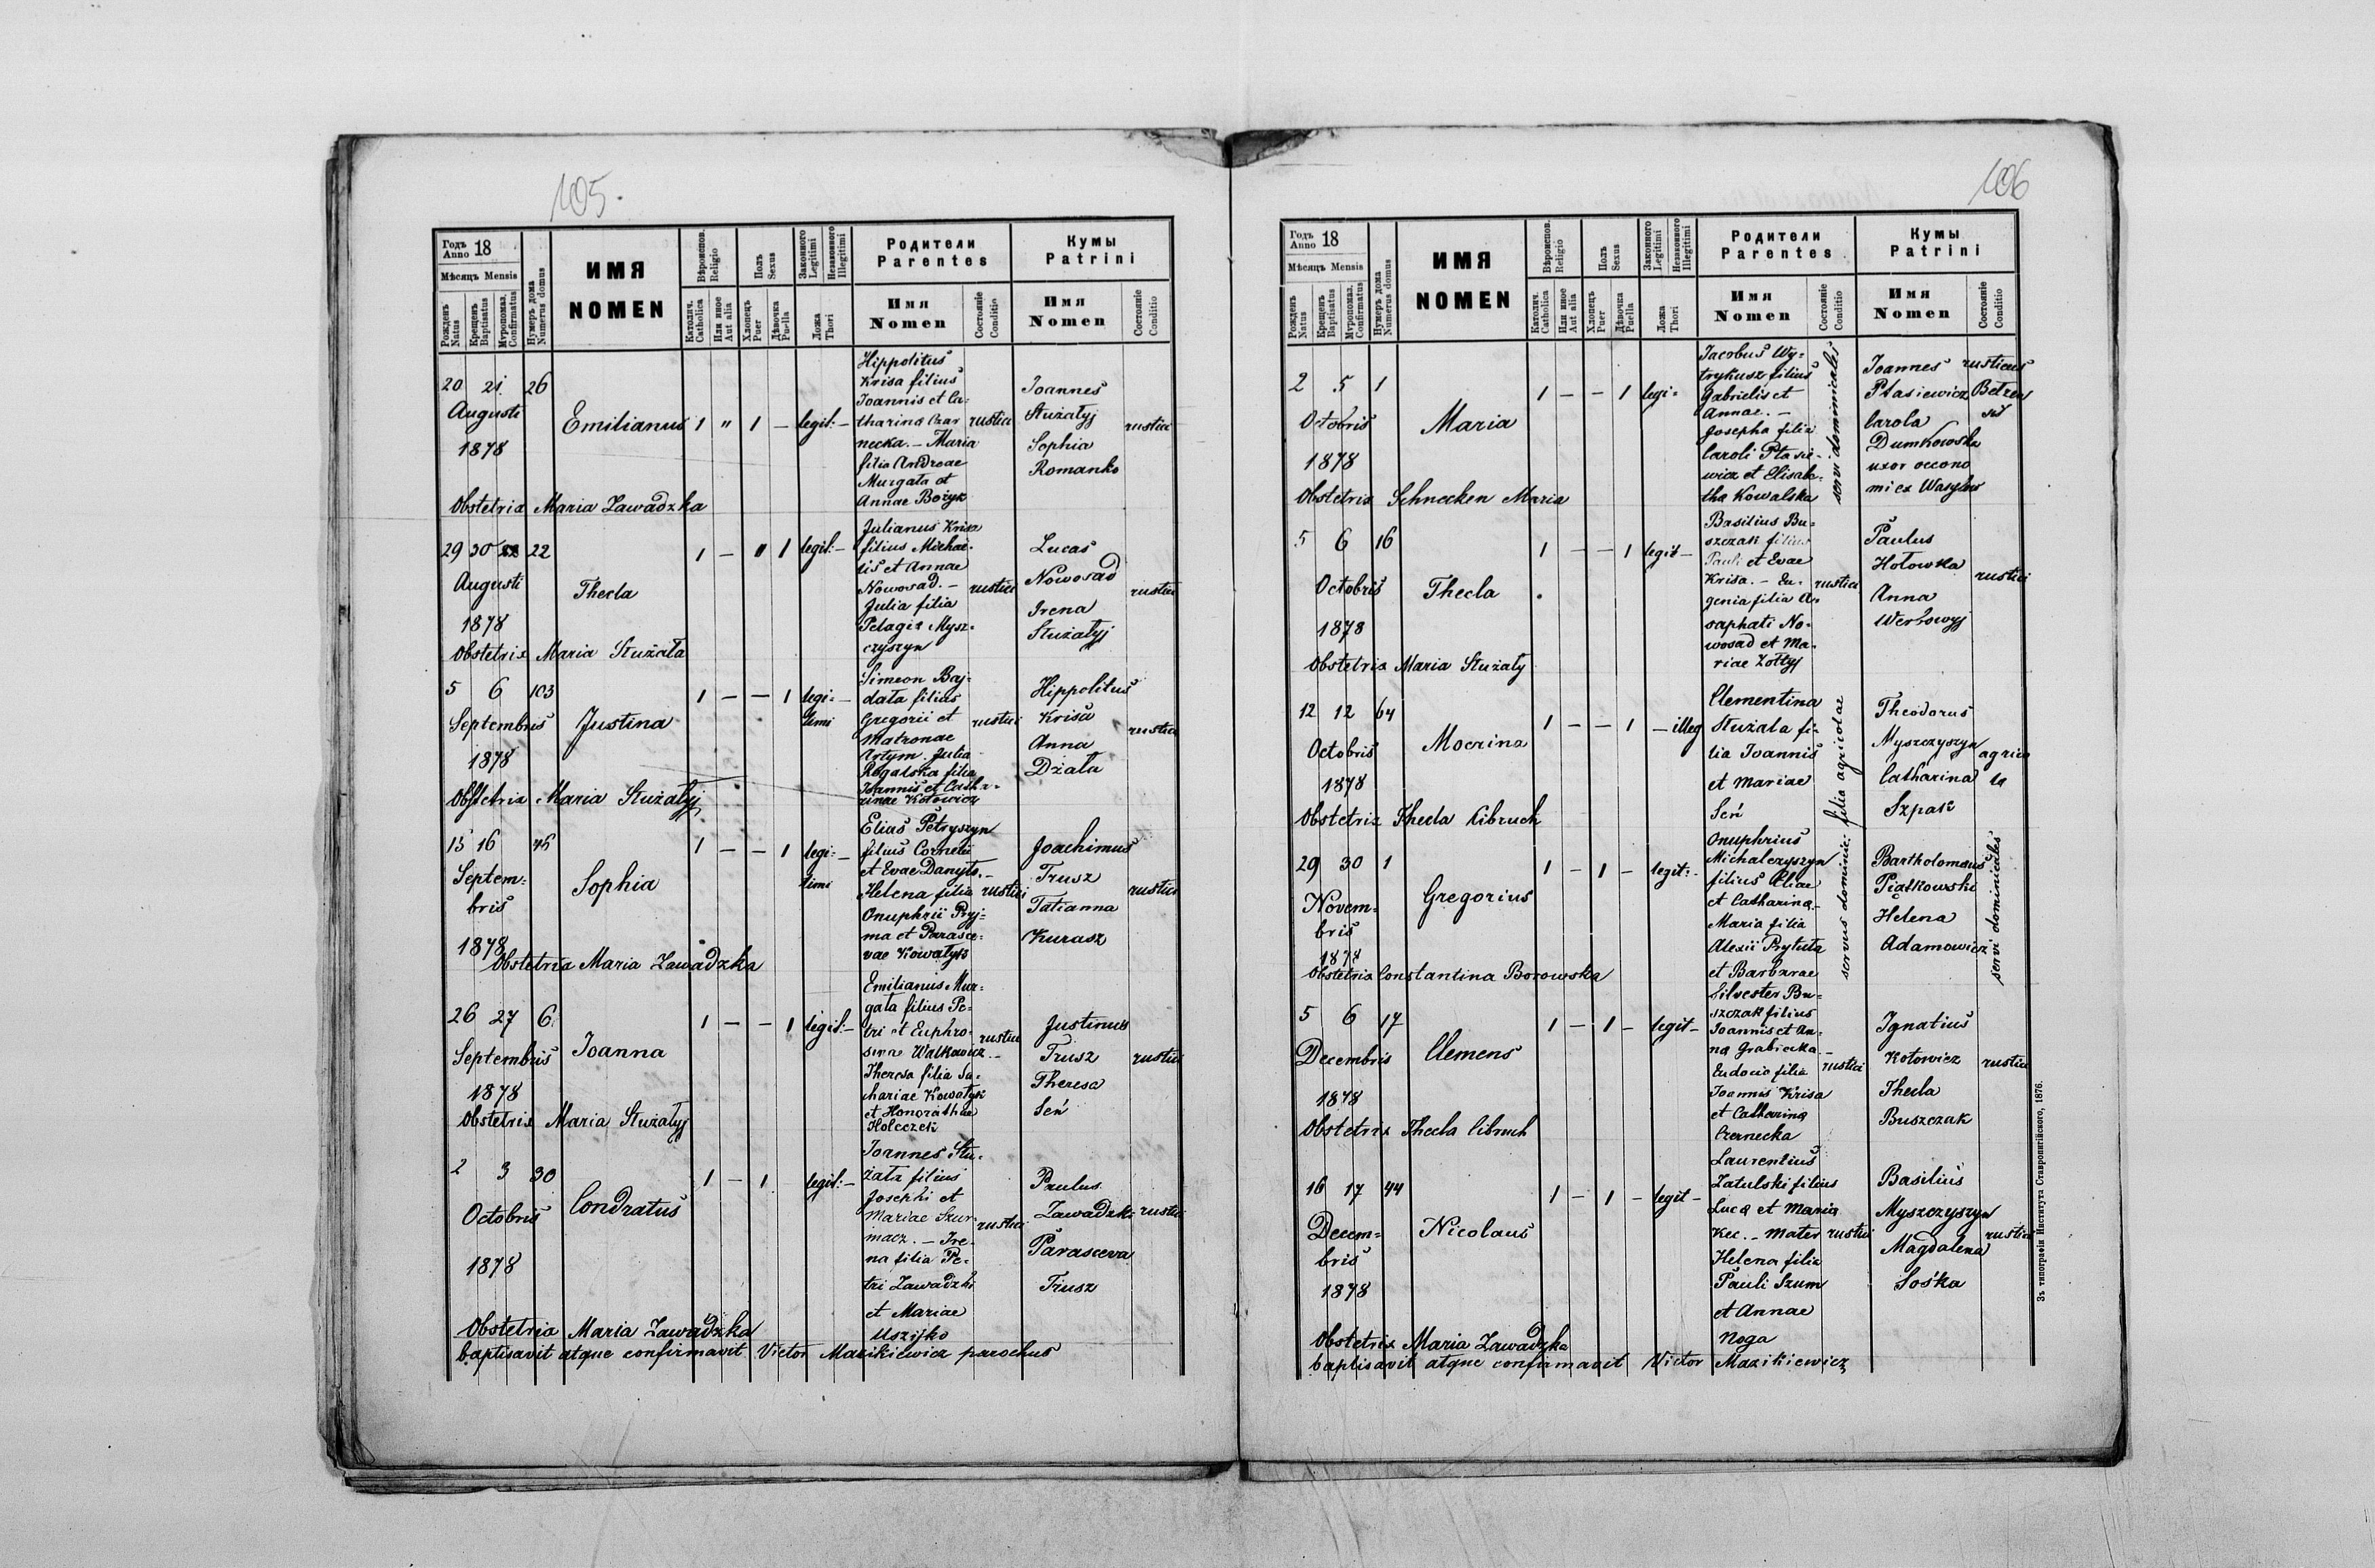 105.
Годъ Anno 18
Мѣсяцъ Mensis
Рожденъ Natus
Крещенъ Baptisatus
Муропомаз. Confirmatus
Нумеръ дома Numerus domus
ИМЯ
NOMEN
Вѣроиспов. Religio
Католич. Catholica
Или иное Aut alia
Полъ Sexus
Хлопецъ Puer
Дѣвочка Puella
Законного Legitimi
Незаконного Illegitimi
Ложа Thori
Родители
Parentes
Имя
Nomen
Состоянie Conditio
Кумы
Patrini
Имя
Nomen
Состоянie Conditio
20 21 26
Augusti
1878
Emilianus
1 " 1 - legit:-
Hippolitus
Krisa filius
Joannis et Ca-
tharina Czar
necka. - Maria
filia Andreae
Murgała et
Annae Bożyk
rustici
Joannes
Stużałyj
Sophia
Romanko
rustici
Obstetrix Maria Zawadzka
29 30 22
Augusti
1878
Thecla
1 - 1 legit:-
Julianus Krisa
filius Michae-
lis et Annae
Nowosad. -
Julia filia
Pelagia Mysz-
czyszyn
rustici
Lucas
Nowosad
Irena
Stużałyj
rustici
Obstetrix Maria Stużała
5 6 103
Septembris
1878
Justina
1 - - 1 legi=
timi
Simeon Baj-
data filius
Gregorii et
Matronae
Artym. Julia
Rogalska filia
Joannis et Catha-
rinae Kotowicz
rustici
Hippolitus
Krisa
Anna
Dżała
rustici
Obstetrix Maria Stużałyj
15 16 45
Septem=
bris
1878
Sophia
1 - - 1 legi=
timi
Elias Petryszyn
filius Cornelii
et Evae Danyło. -
Helena filia
Onuphrii Pryj=
ma et Parasce=
vae Kowalyk
rustici
Joachimus
Trusz
Tatianna
Kurasz
rustici
Obstetrix Maria Zawadzka
26 27 6
Septembris
1878
Joanna
1 - - 1 legit:-
Emilianus Mur=
gała filius Pe-
tri et Euphro-
sinae Walkawicz -
Theresa filia Za-
chariae Kowalyk
et Honorathae
Holeczek
rustici
Justinus
Trusz
Theresa
Seń
rustici
Obstetrix Maria Stużałyj
2 3 30
Octobris
1878
Condratus
1 - 1 legit:-
Joannes Stu-
żała filius
Josephi et
Mariae Szur-
macz. - Ire-
na filia Pe-
tri Zawadzki
et Mariae
Uszijko
rustici
Paulus
Zawadzki
Parasceva
Trusz
rustici
Obstetrix Maria Zawadzka
baptisavit atque confirmavit Victor Mazikiewicz parochus
106
Годъ Anno 18
Мѣсяцъ Mensis
Рожденъ Natus
Крещенъ Baptisatus
Муропомаз. Confirmatus
Нумеръ дома Numerus domus
ИМЯ
NOMEN
Вѣроиспов. Religio
Католич. Catholica
Или иное Aut alia
Полъ Sexus
Хлопецъ Puer
Дѣвочка Puella
Законного Legitimi
Незаконного Illegitimi
Ложа Thori
Родители
Parentes
Имя
Nomen
Состоянie Conditio
Кумы
Patrini
Имя
Nomen
Состоянie Conditio
2 5 1
Octobris
1878
Maria
1 - - 1 legi=
Jacobus Wy=
trykusz filius
Gabrielis et
Annae. -
Josepha filia
Caroli Ptasie-
wicz et Elisabe-
tha Kowalska
servi dominicales
Joannes rusticus
Ptasiewicz
Carola
Dumkowska
uxor oecono
mi ex Wasylow
Obstetrix Schnecken Maria
5 6 16
Octobris
1878
Thecla
1 - - 1 legit-
Basilius Bu=
szczak filius
Pauli et Evae
Krisa. - Eu-
genia filia A-
saphati No-
wosad et Ma-
riae Zołtyj
rustici
Paulus
Hołowka
Anna
Werbowyj
rustici
Obstetrix Maria Stużały
12 12 64
Octobris
1878
Mocrina
1 - - 1 - illeg
Clementina
Stużala fi-
lia Joannis
et Mariae
Seń
filia agricolae
Theodorus
Myszczyszyn
Catharina
Szpak
agrico
la
Obstetrix Thecla Cibruch
29 30 1
Novem=
bris
1878
Gregorius
1 - 1 - legit:-
Onuphrius
Michalczyszyn
filius Eliae
et Catharina -
Maria filia
Alexii Prytuła
et Barbarae
servus dominic:
Bartholomaeus
Piątkowski
Helena
Adamowicz
servi dominicales
Obstetrix Constantina Borowska
5 6 17
Decembris
1878
Clemens
1 - 1 - legit-
Silvester Bu=
szczak filius
Joannis et An-
na Grabiecka -
Eudocia filia
Joannis Krisa
et Catharina
Czernecka
rustici
Ignatius
Kotowicz
Thecla
Buszczak
rustici
Obstetrix Thecla Cibruch
16 17 44
Decem=
bris
1878
Nicolaus
1 - 1 - legit-
Laurentius
Zatulski filius
Luca et Maria
Kec. - Mater
Helena filia
Pauli Szum
et Annae
Noga
rustici
Basilius
Myszczyszyn
Magdalena
Sośka
rustici
Obstetrix Maria Zawadzka
baptisavit atque confirmavit Victor Mazikiewicz
Зъ типографiи Института Ставропигiйского, 1876.